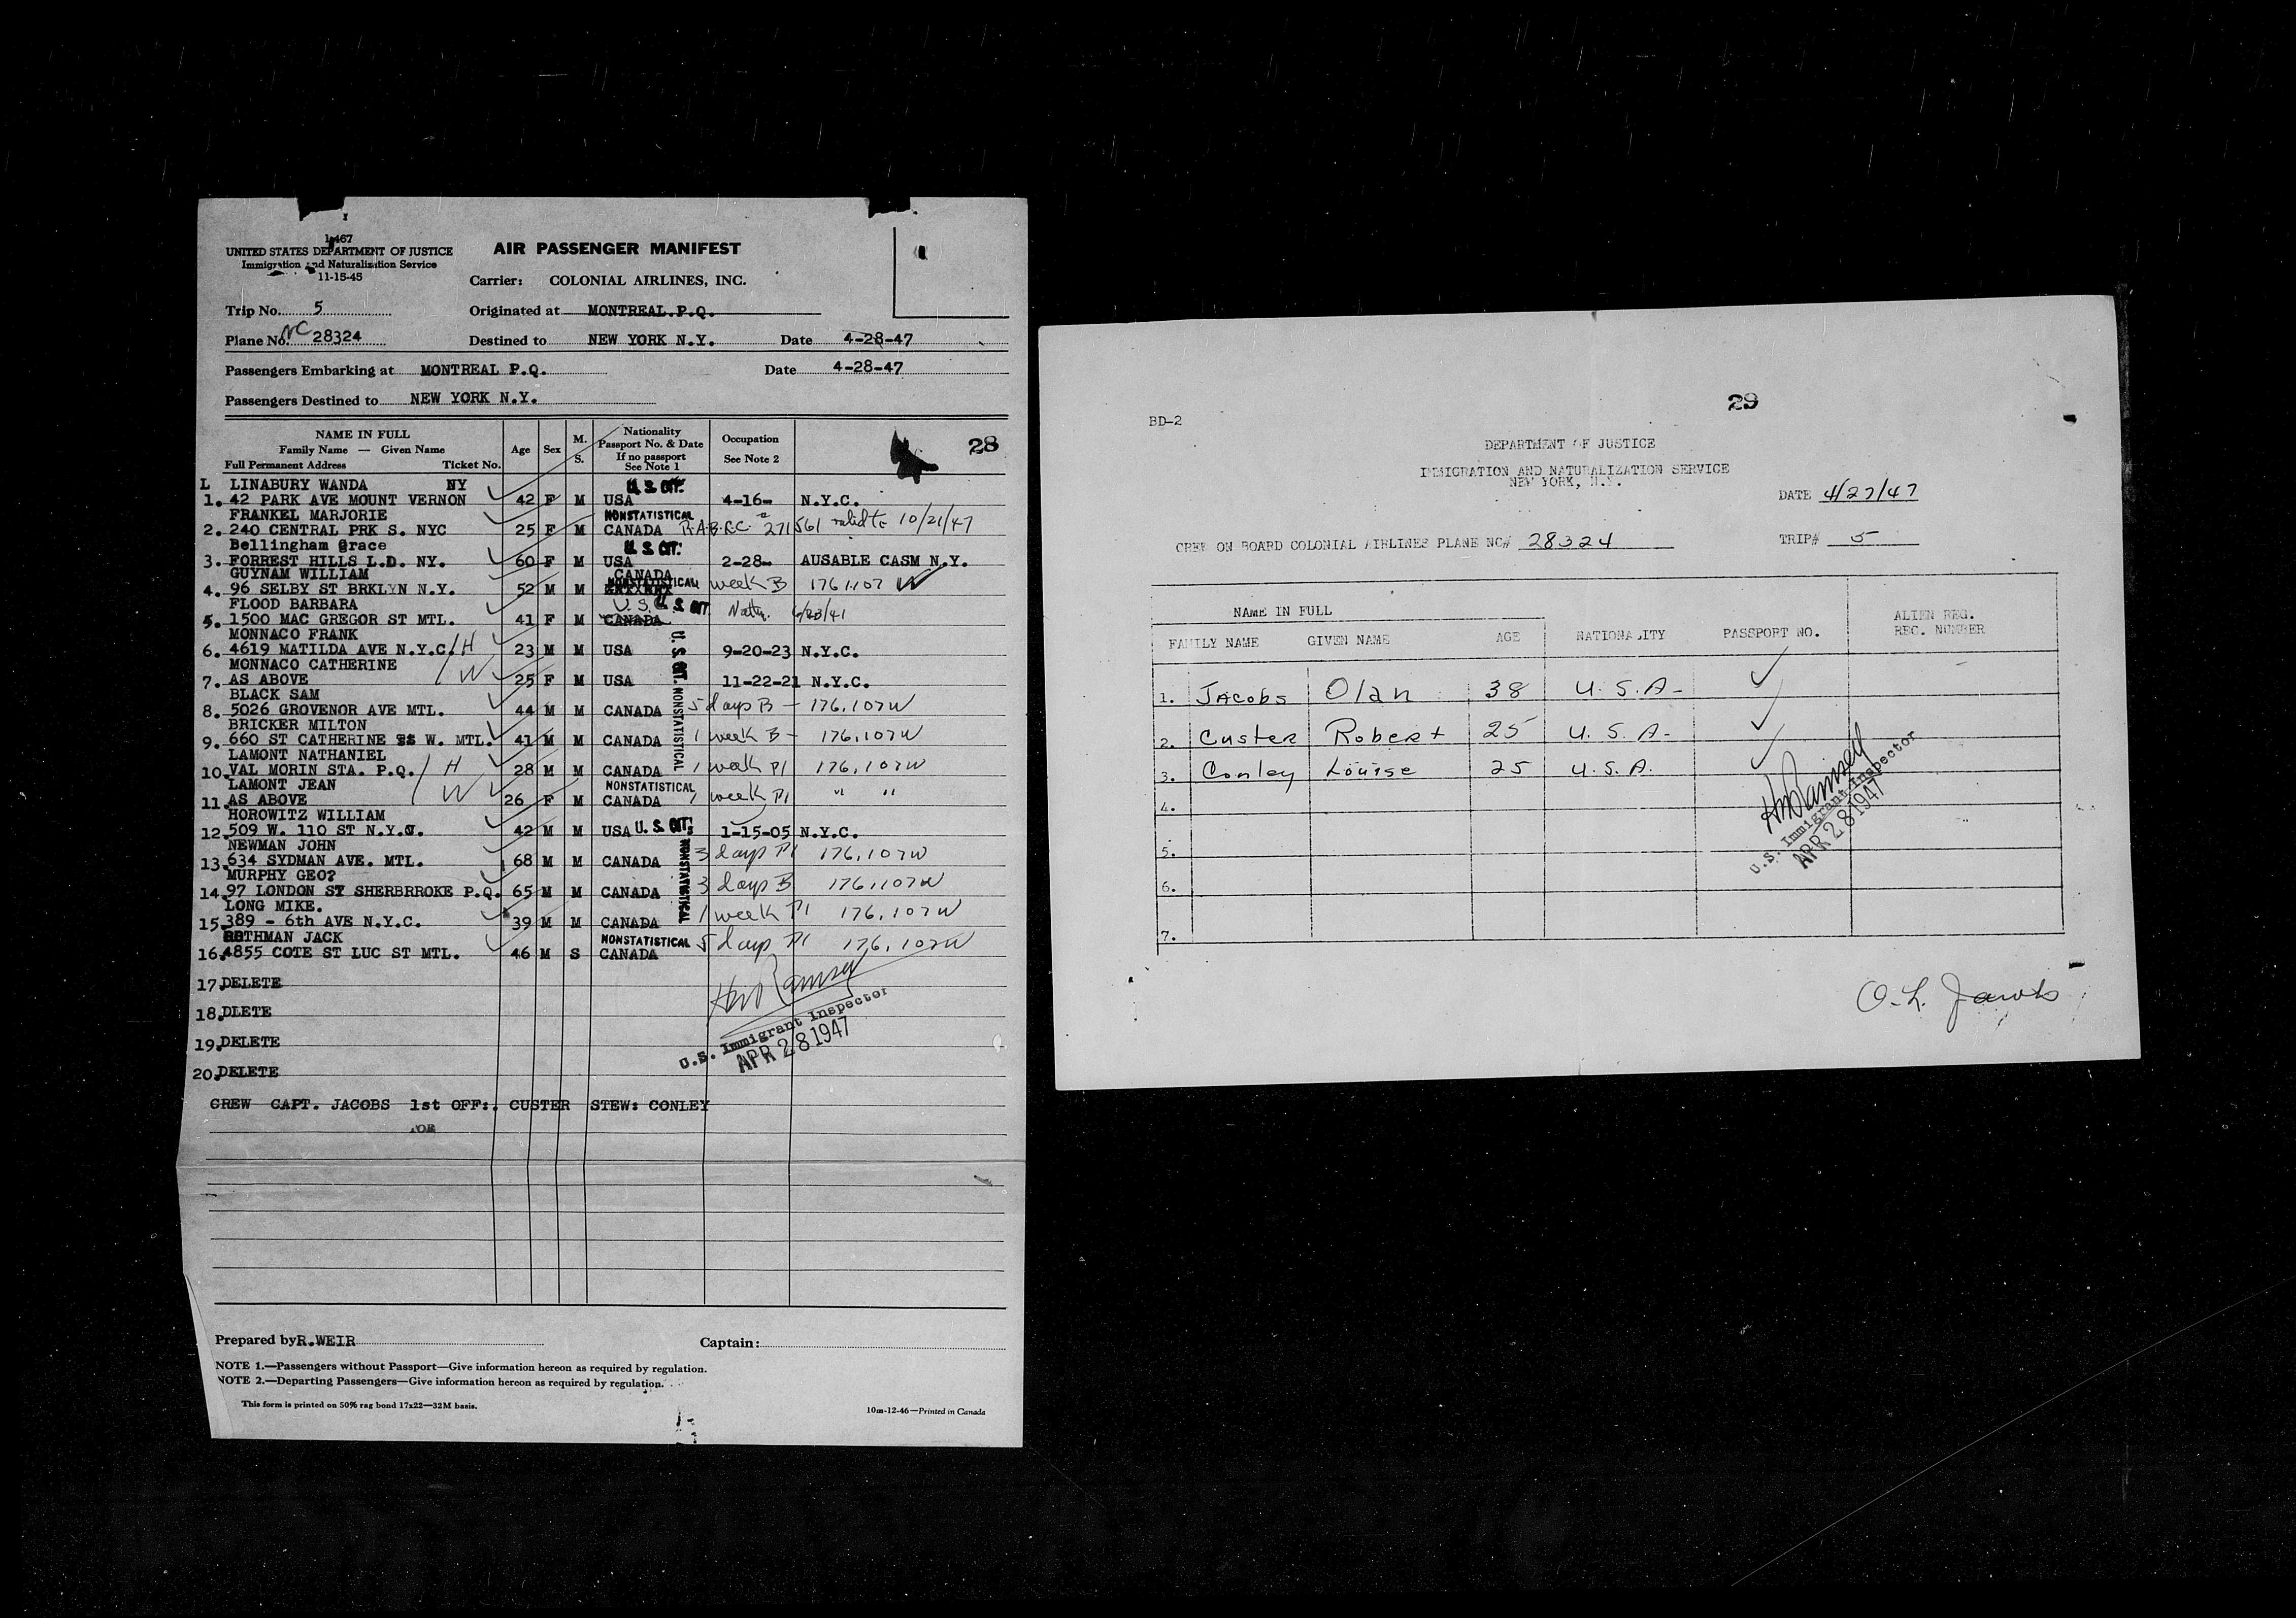 1467
UNITED STATES DEPARTMENT OF JUSTICE
Immigration and Naturalization Service
11-15-45
AIR PASSENGER MANIFEST
Carrier: COLONIAL AIRLINES, INC.
Trip No. 5
Originated at MONTREAL.P.Q.
Plane No. NC 28324
Destined to NEW YORK N.Y. Date 4-28-47
Passengers Embarking at MONTREAL P.Q. Date 4-28-47
Passengers Destined to NEW YORK N.Y.
NAME IN FULL
Family Name — Given Name
Full Permanent Address Ticket No.
Age Sex M. S.
Nationality
Passport No. & Date
If no passport
See Note 1
Occupation
See Note 2
28
L LINABURY WANDA NY U.S. CIT.
1. 42 PARK AVE MOUNT VERNON 42 F M USA 4-16- N.Y.C.
FRANKEL MARJORIE NONSTATISTICAL
2. 240 CENTRAL PRK S. NYC 25 F M CANADA R.A.B.C.C. # 271561 valid to 10/21/47
Bellingham Grace U.S. CIT.
3. FORREST HILLS L.D. NY. 60 F M USA 2-28- AUSABLE CASM N.Y.
GUYNAM WILLIAM CANADA NONSTATISTICAL
4. 96 SELBY ST BRKLYN N.Y. 52 M M week B 176.107 W
FLOOD BARBARA U.S. U.S. CIT. Natz. 6/23/41
5. 1500 MAC GREGOR ST MTL. 41 F M CANADA
MONNACO FRANK
6. 4619 MATILDA AVE N.Y.C. / H 23 M M USA U.S. CIT. 9-20-23 N.Y.C.
MONNACO CATHERINE
7. AS ABOVE / W 25 F M USA 11-22-21 N.Y.C.
BLACK SAM
8. 5026 GROVENOR AVE MTL. 44 M M CANADA NONSTATISTICAL 5 days B - 176.107W
BRICKER MILTON
9. 660 ST CATHERINE W. MTL. 41 M M CANADA 1 week B - 176.107W
LAMONT NATHANIEL
10. VAL MORIN STA. P.Q. / H 28 M M CANADA 1 week Pl 176.107W
LAMONT JEAN NONSTATISTICAL
11. AS ABOVE / W 26 F M CANADA 1 week Pl " "
HOROWITZ WILLIAM
12. 509 W. 110 ST N.Y.C. 42 M M USA U.S. CIT. 1-15-05 N.Y.C.
NEWMAN JOHN
13. 634 SYDMAN AVE. MTL. 68 M M CANADA NONSTATISTICAL 3 days Pl 176.107W
MURPHY GEO?
14. 97 LONDON ST SHERBRROKE P.Q. 65 M M CANADA 3 days B 176.107W
LONG MIKE.
15. 389 - 6th AVE N.Y.C. 39 M M CANADA 1 week Pl 176.107W
ROTHMAN JACK NONSTATISTICAL
16. 4855 COTE ST LUC ST MTL. 46 M S CANADA 5 days Pl 176.107W
17. DELETE
18. DLETE
19. DELETE
20. DELETE
HW Ramsey
U.S. Immigrant Inspector
APR 28 1947
CREW CAPT. JACOBS 1st OFF:. CUSTER STEW: CONLEY
Prepared by R.WEIR Captain:
NOTE 1.—Passengers without Passport—Give information hereon as required by regulation.
NOTE 2.—Departing Passengers—Give information hereon as required by regulation.
This form is printed on 50% rag bond 17x22—32M basis.
10m-12-46—Printed in Canada
29
BD-2
DEPARTMENT OF JUSTICE
IMMIGRATION AND NATURALIZATION SERVICE
NEW YORK, N.Y.
DATE 4/27/47
CREW ON BOARD COLONIAL AIRLINES PLANE NC# 28324 TRIP# 5
NAME IN FULL
FAMILY NAME GIVEN NAME AGE NATIONALITY PASSPORT NO. ALIEN REG. REC. NUMBER
1. Jacobs Olan 38 U.S.A.
2. Custer Robert 25 U.S.A.
3. Conley Louise 25 U.S.A.
4.
5.
6.
7.
HW Ramsey
U.S. Immigrant Inspector
APR 28 1947
O. L. Jacobs